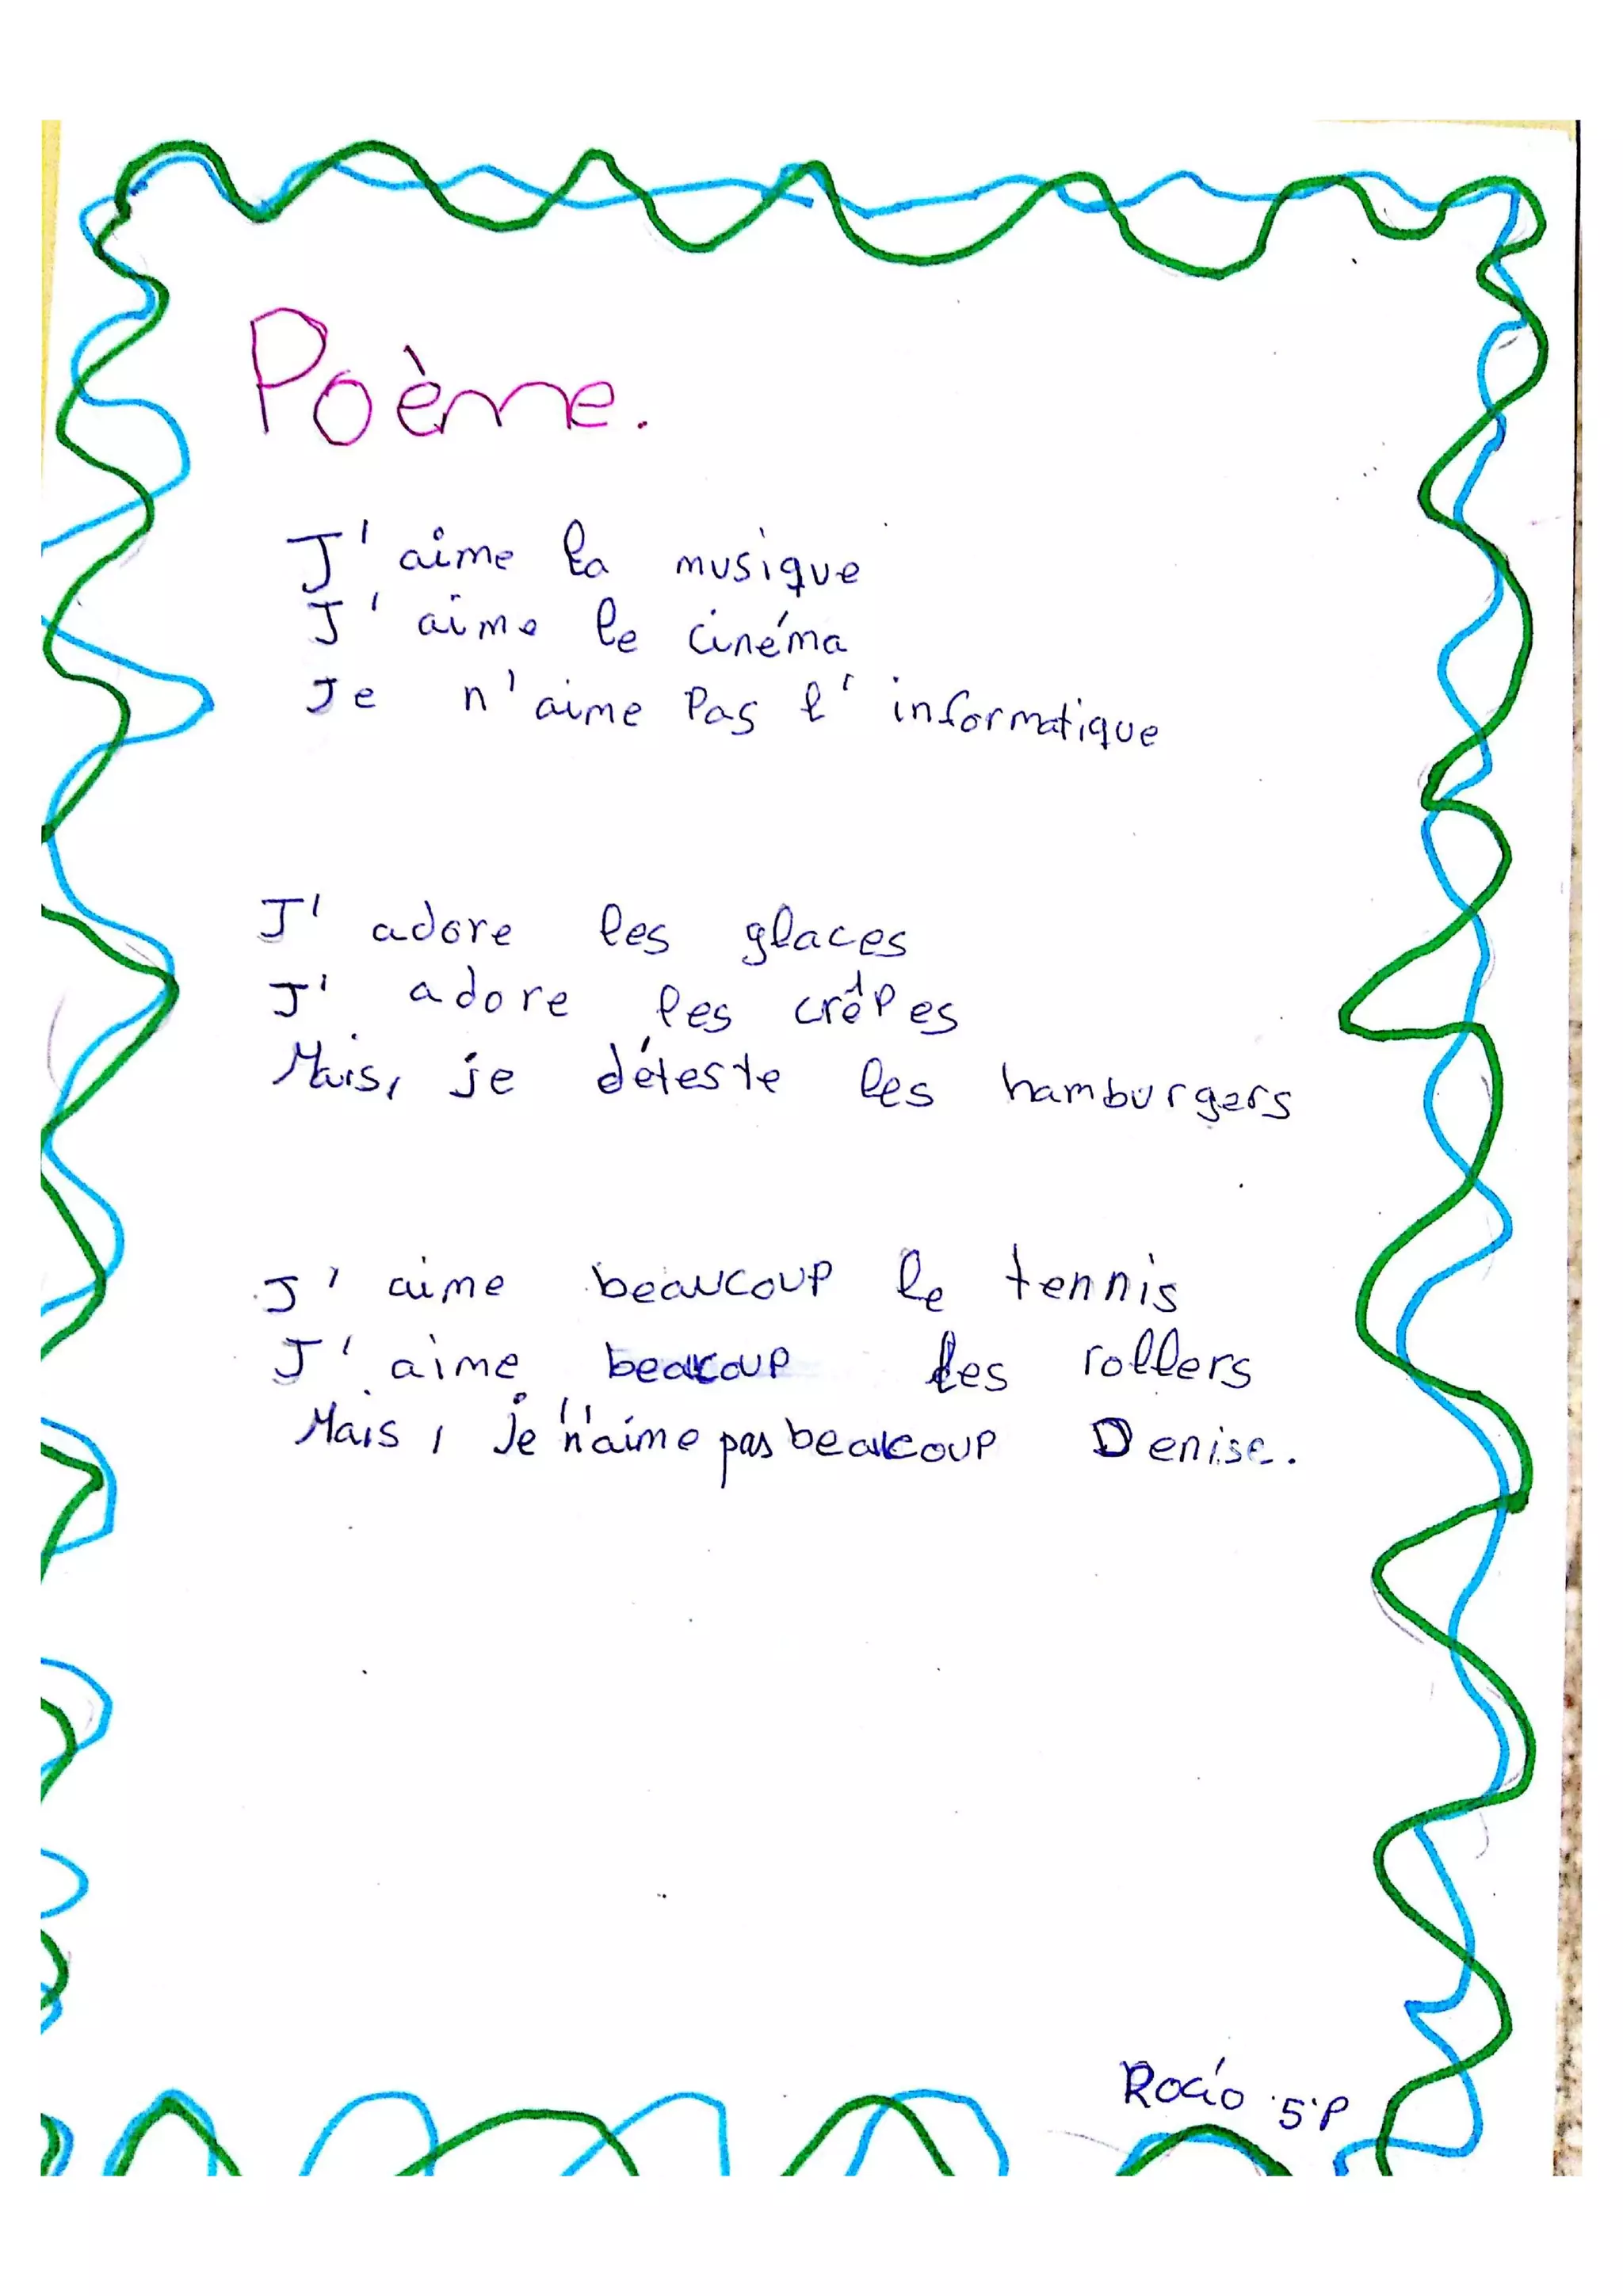 Poème.
J'aime la musique
J'aime le cinéma
Je n'aime Pas l'informatique
J'adore les glaces
J'adore les crêpes
Mais, je déteste les hamburgers
J'aime beaucoup le tennis
J'aime beaucoup les rollers
Mais, je n'aime pas beaucoup Denise.
Rocío 5ºP